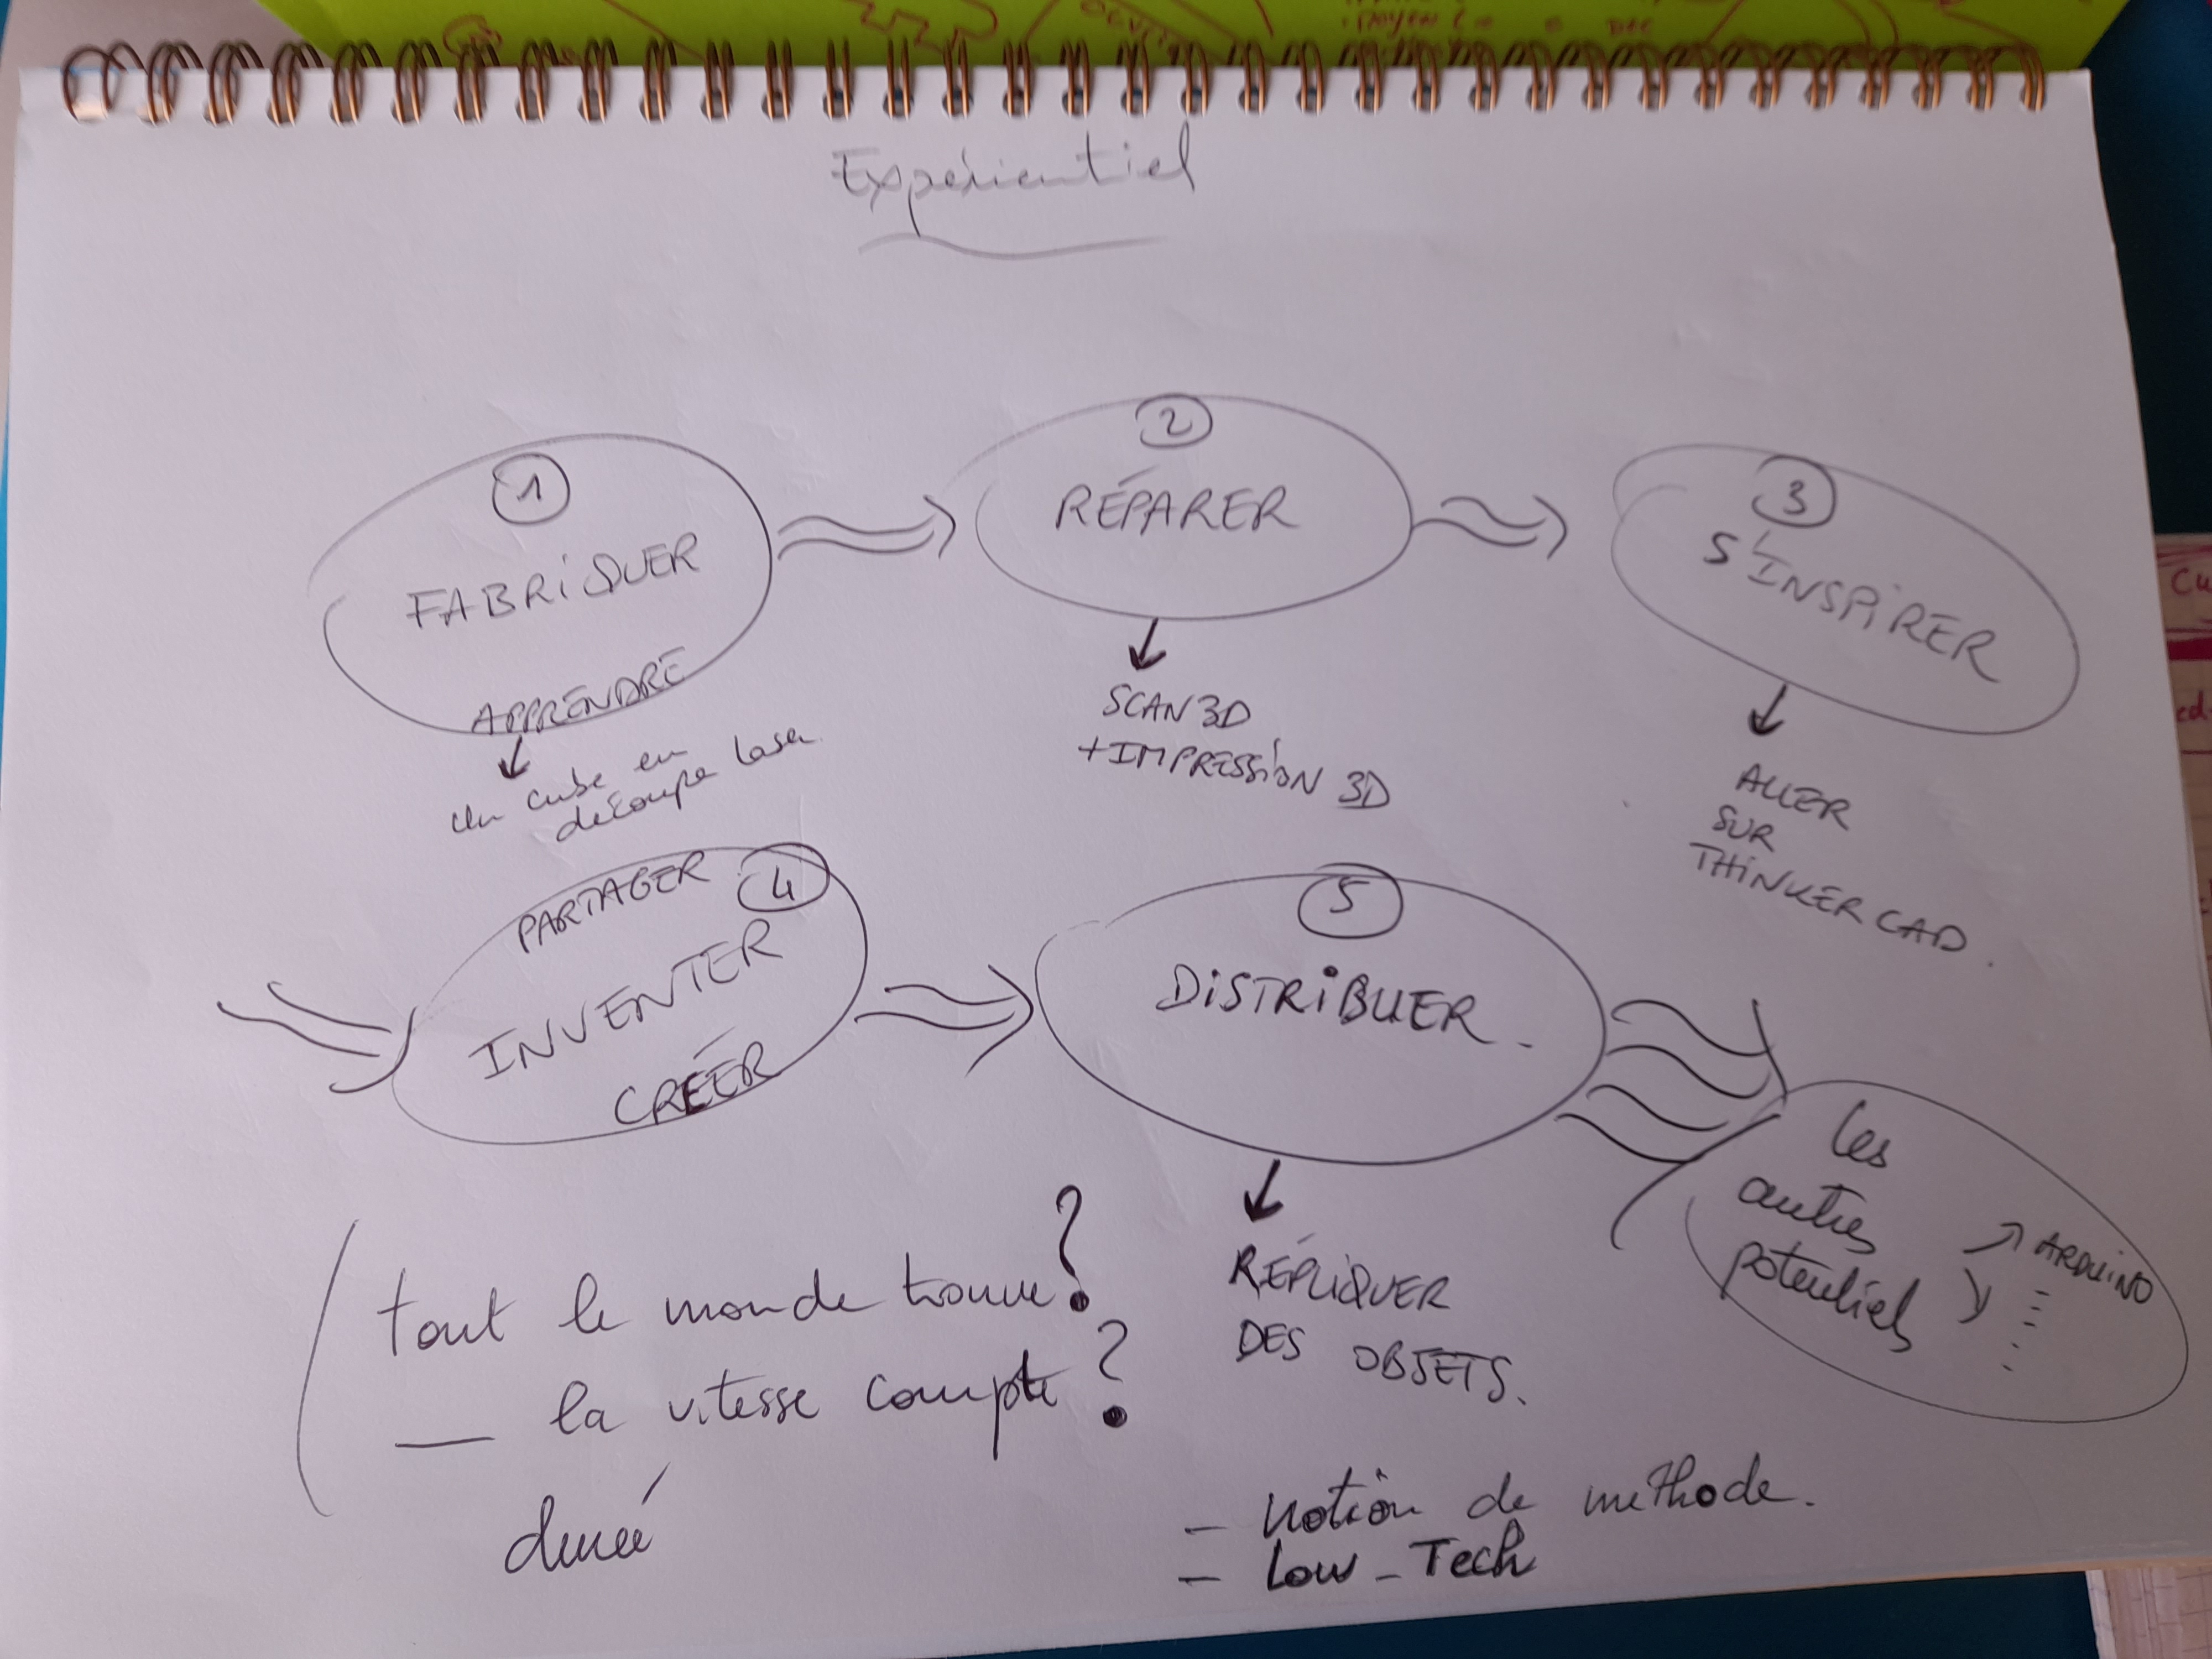 Expérientiel
1
FABRIQUER
APPRENDRE
Un cube en
découpe laser
2
RÉPARER
SCAN 3D
+ IMPRESSION 3D
3
S'INSPIRER
ALLER
SUR
THINKER CAD.
PARTAGER
4
INVENTER
CRÉER
5
DISTRIBUER.
RÉPLIQUER
DES OBJETS.
les
autres
potentiels
ARDUINO
tout le monde trouve ?
la vitesse compte ?
durée
- notion de méthode.
- Low-Tech